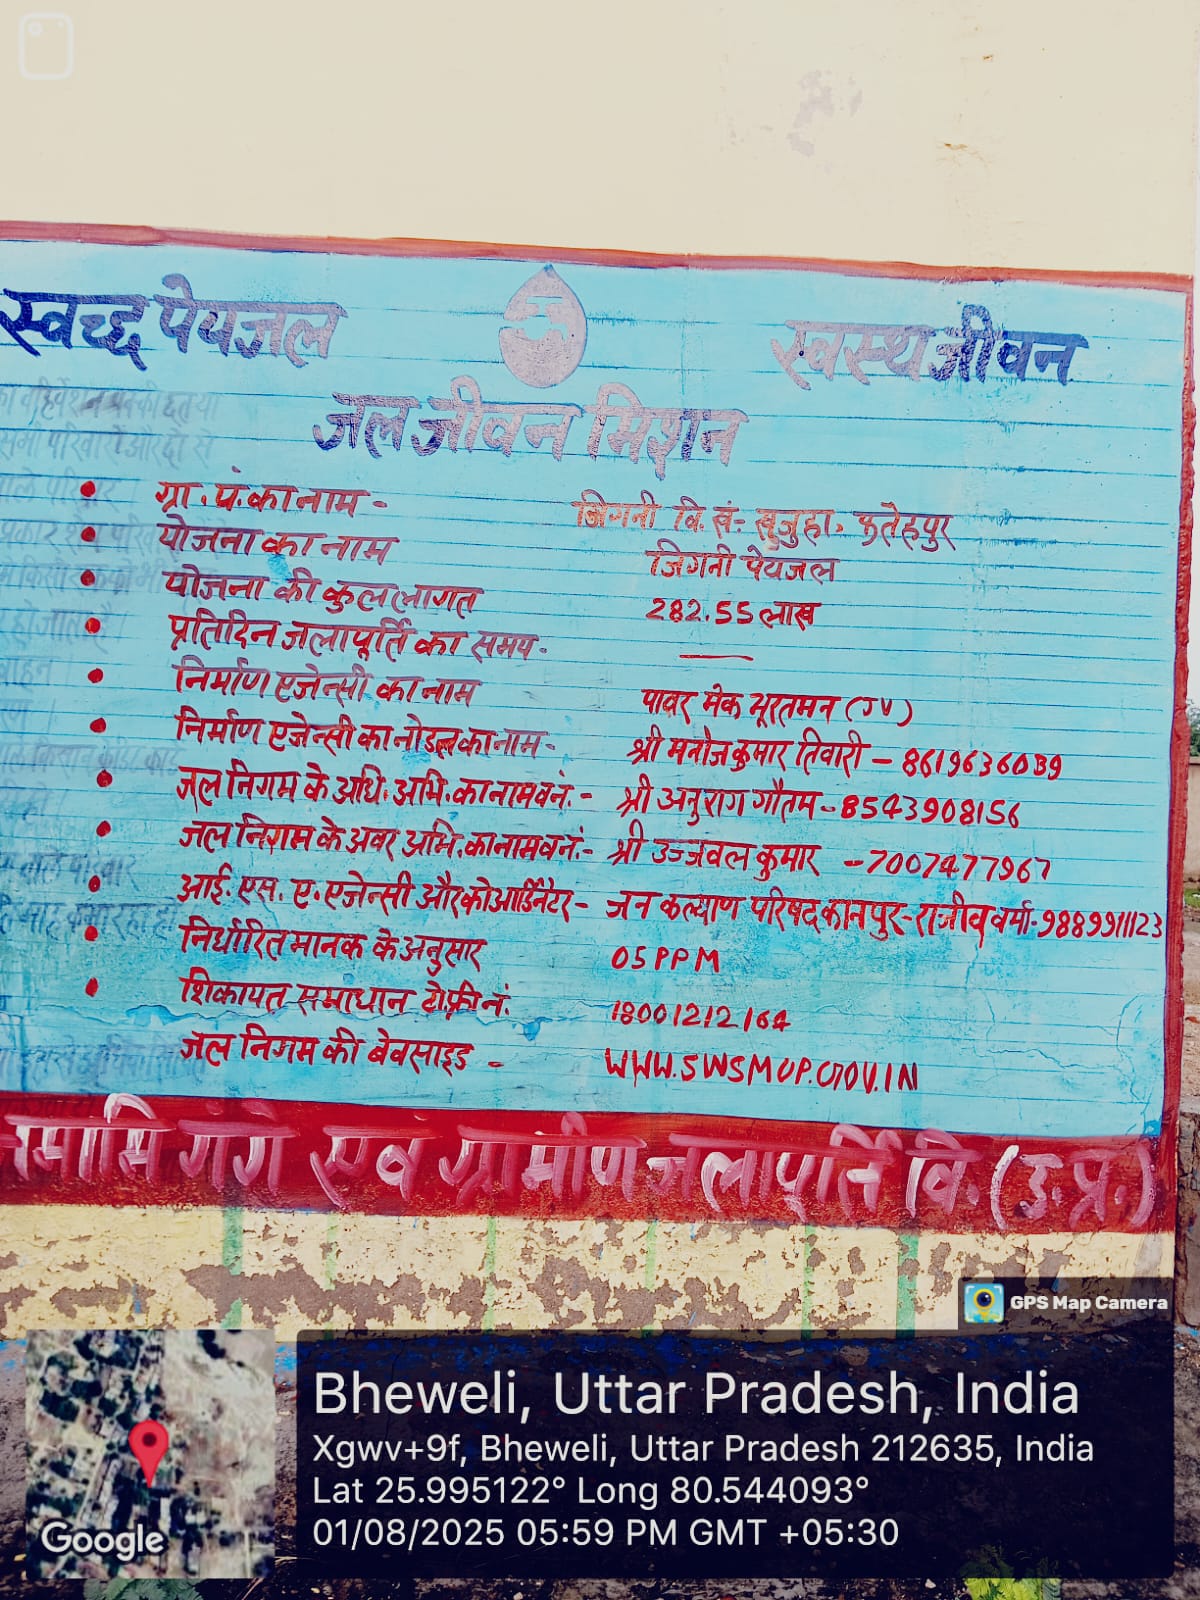 स्वच्छ पेयजल स्वस्थ जीवन
जल जीवन मिशन
ग्रा.पं.का नाम - जिगनी वि.खं- खुजुहा, फतेहपुर
योजना का नाम जिगनी पेयजल
योजना की कुल लागत 282.55 लाख
प्रतिदिन जलापूर्ति का समय -
निर्माण एजेन्सी का नाम पावर मेक भूरतमन (JV)
निर्माण एजेन्सी का नोडल का नाम - श्री मनोज कुमार तिवारी - 8619636039
जल निगम के अधि. अभि. का नाम व नं. - श्री अनुराग गौतम - 8543908156
जल निगम के अवर अभि. का नाम व नं. - श्री उज्जवल कुमार - 7007477967
आई. एस. ए. एजेन्सी और कोआर्डिनेटर - जन कल्याण परिषद कानपुर - राजीव वर्मा - 9889911123
निर्धारित मानक के अनुसार 05 PPM
शिकायत समाधान टो.फ्री नं. 18001212164
जल निगम की वेबसाइड - WWW.SWSMUP.GOV.IN
नमामि गंगे एवं ग्रामीण जलापूर्ति वि. (उ.प्र.)
GPS Map Camera
Bheweli, Uttar Pradesh, India
Xgwv+9f, Bheweli, Uttar Pradesh 212635, India
Lat 25.995122° Long 80.544093°
01/08/2025 05:59 PM GMT +05:30
Google